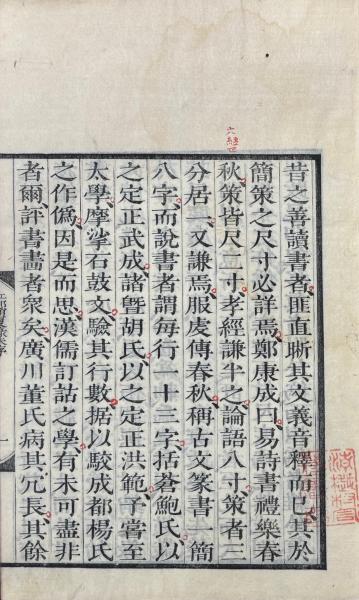 昔之善讀書者匪直晰其文義音釋而已其於
簡策之尺寸必詳焉鄭康成曰易詩書禮樂春
秋策皆尺二寸孝經謙半之論語八寸策者三
分居一又謙焉服虔傳春秋稱古文篆書一簡
八字而說書者謂每行一十三字括蒼鮑氏以
之定正武成諸暨胡氏以之定正洪範予嘗至
太學摩挲石鼓文驗其行數据以駮成都楊氏
之作僞因是而思漢儒訂詁之學有未可盡非
者爾評書畵者眾矣廣川董氏病其冗長其餘